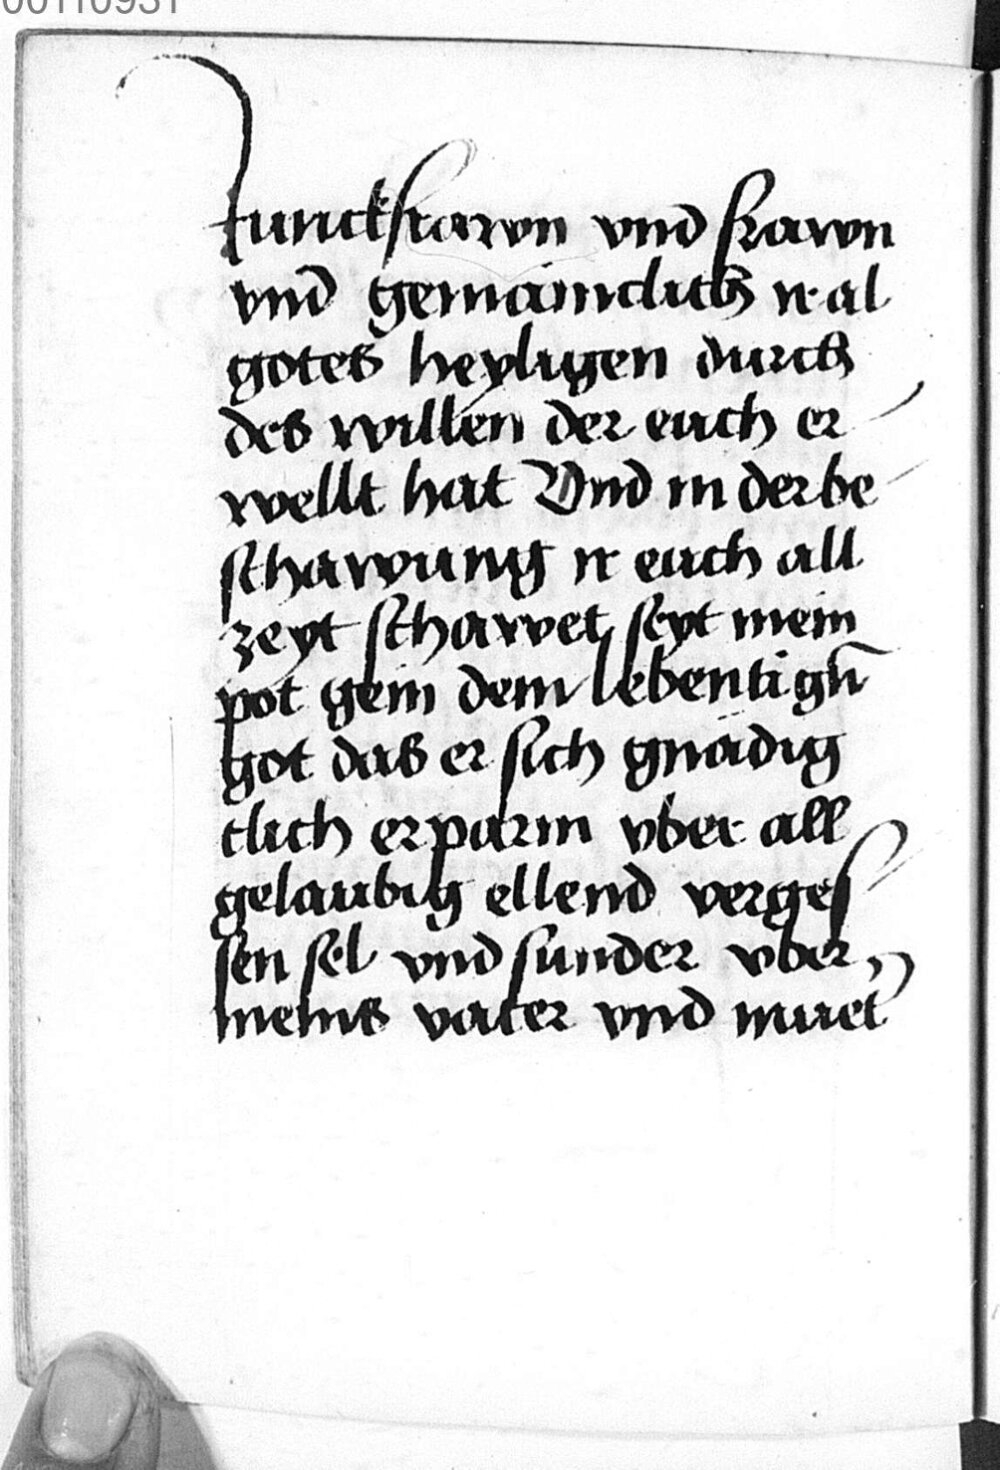 00110931
Junckfrawen vnd frawen
vnd gemainclich ir al
gotes heyligen durch
des willen der euch er
wellt hat Vnd in der be
schawung ir euch all
zeyt schawet seyt mein
pot gein dem lebentign̄
got das er sich gnädig
clich erparm vber all
gelaubig ellend verges
sen sel vnd sunder vber
meins vater vnd muet